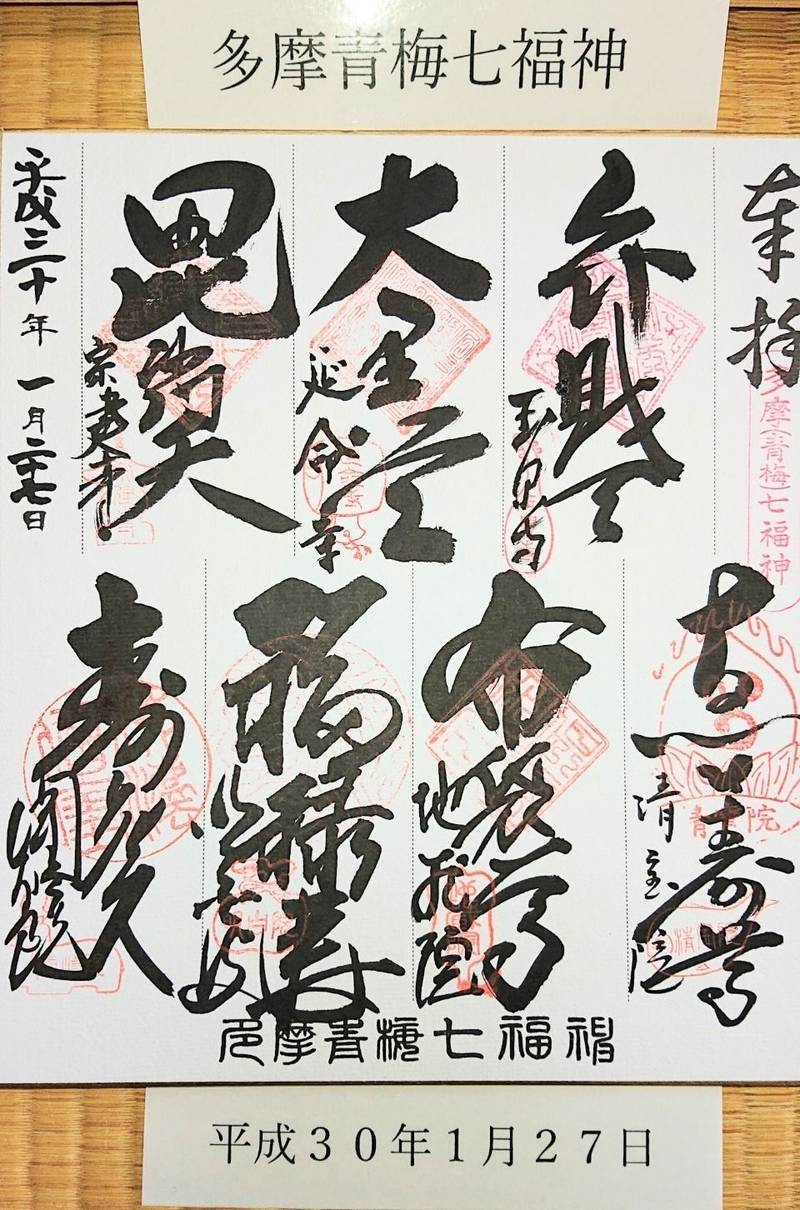 多摩青梅七福神
奉拝
多摩(青梅)七福神
弁財天
玉泉寺
大黒天
延命寺
毘沙門天
宗建寺
平成三十年一月二十七日
清宝院
布袋尊
地蔵院
福禄寿
寿老人
聞修院
多摩青梅七福神
平成３０年１月２７日